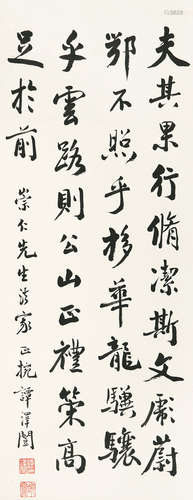 夫其果行脩潔斯文彪蔚
鄂不照乎移華龍驥驤
乎雲路則公山正禮榮高
足於前
崇仁先生法家正捥 譚澤闓